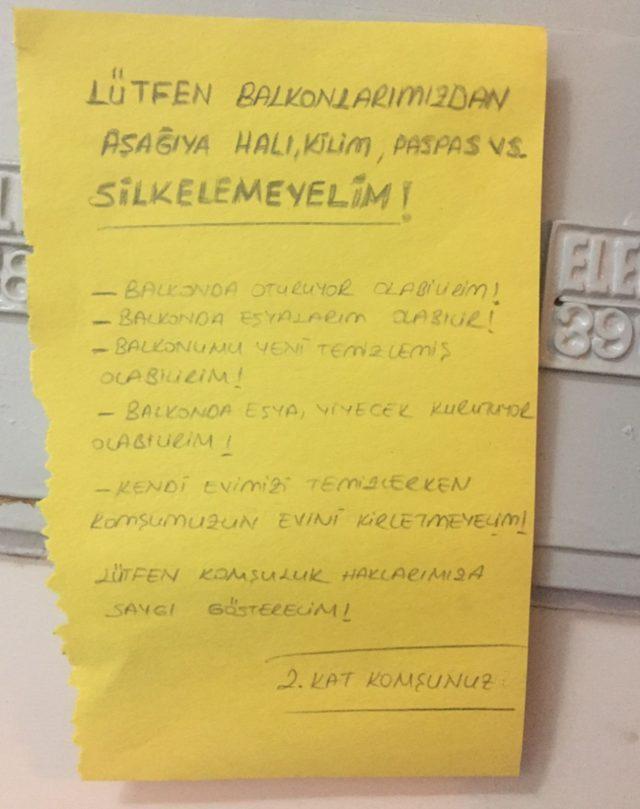 LÜTFEN BALKONLARIMIZDAN
AŞAĞIYA HALI, KİLİM, PASPAS VS.
SİLKELEMEYELİM!
– BALKONDA OTURUYOR OLABİLİRİM!
– BALKONDA EŞYALARIM OLABİLİR!
– BALKONUMU YENİ TEMİZLEMİŞ
OLABİLİRİM!
– BALKONDA EŞYA, YİYECEK KURUTUYOR
OLABİLİRİM!
– KENDİ EVİMİZİ TEMİZLERKEN
KOMŞUMUZUN EVİNİ KİRLETMEYELİM!
LÜTFEN KOMŞULUK HAKLARIMIZA
SAYGI GÖSTERELİM!
2. KAT KOMŞUNUZ
ELE
39